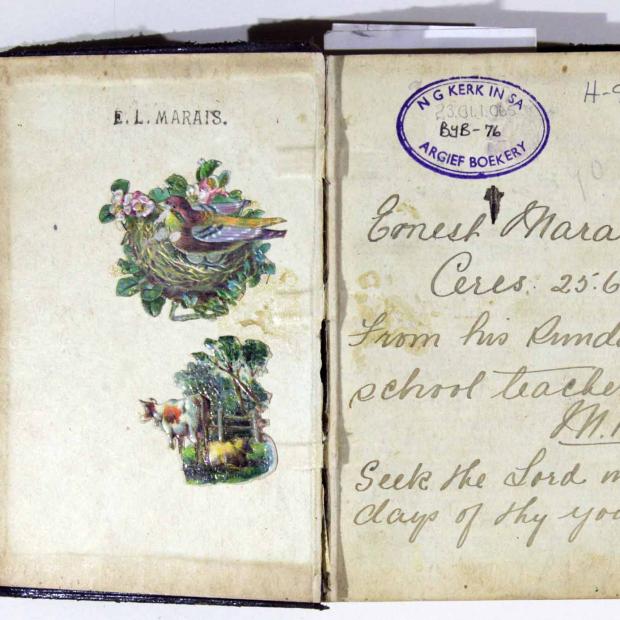 E. L. MARAIS.
N G KERK IN SA
BYB-76
ARGIEF BOEKERY
H-9
Ernest Mara
Ceres. 25.6
From his Sunda
school teache
M.
Seek the Lord
days of thy you